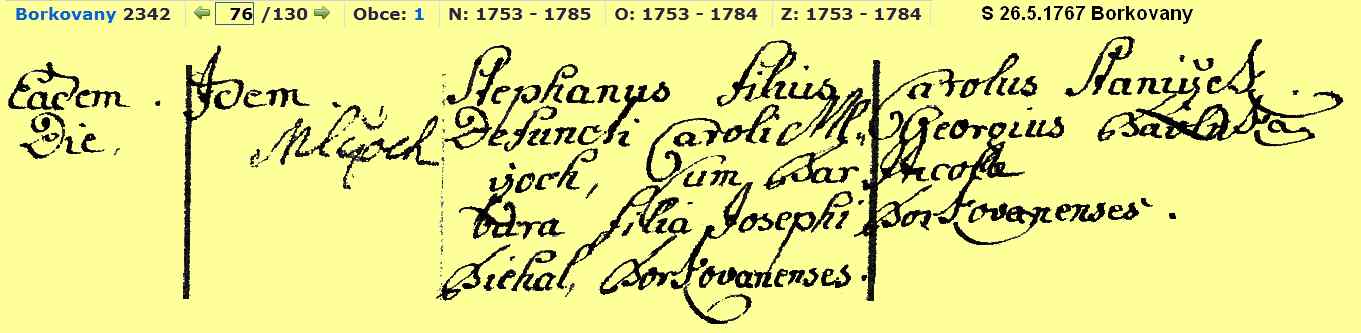 Borkovany 2342 76 /130 Obce: 1 N: 1753 - 1785 O: 1753 - 1784 Z: 1753 - 1784 S 26.5.1767 Borkovany
Eadem .
Die,
Idem .
Mlčoch
Stephanus filius
Defuncti Caroli Ml„
čoch, Cum Bar
bara filia Josephi
Bichal, Borkovanenses.
Carolus Stanižek,
Georgius
Incolae
Borkovanenses .